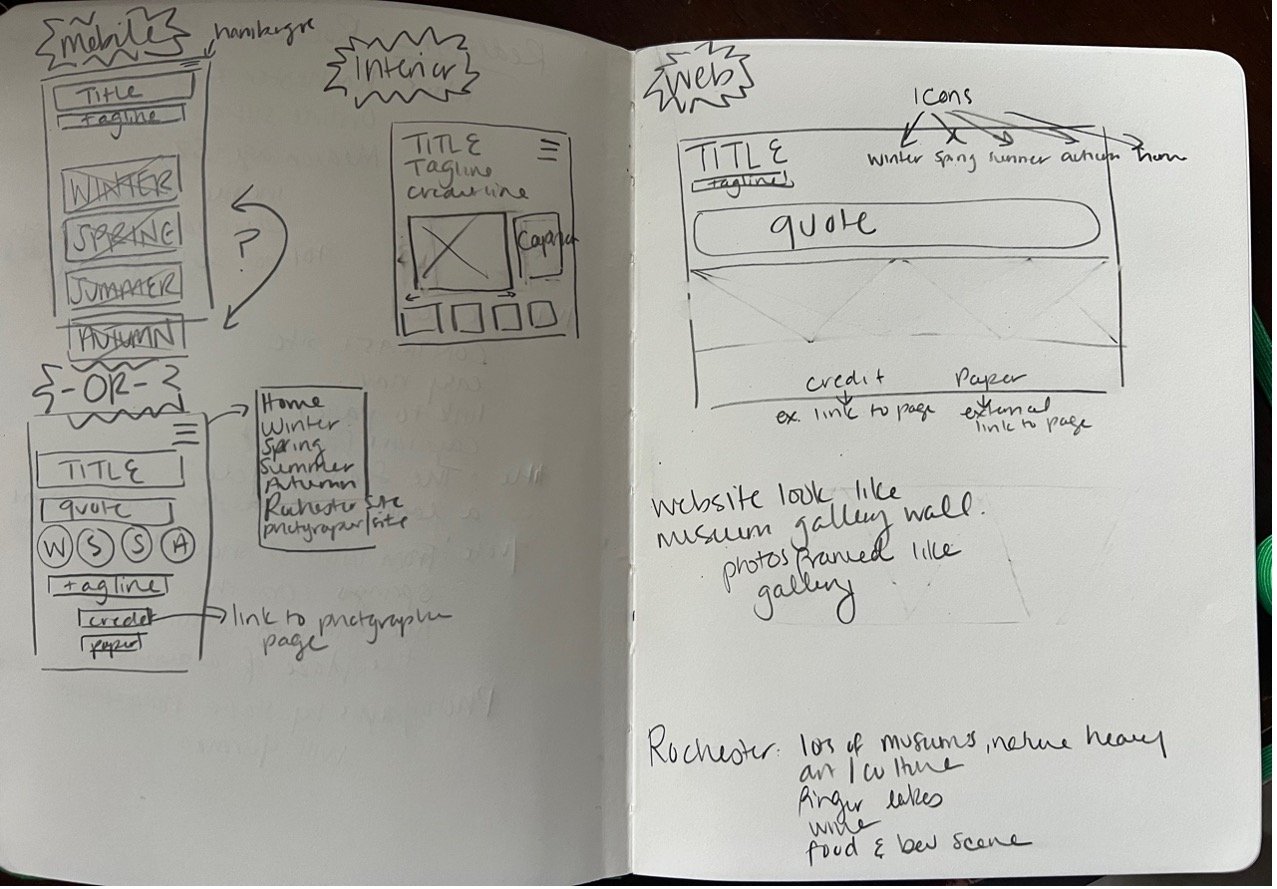 Mobile
Title
tagline
WINTER
SPRING
SUMMER
AUTUMN
?
- OR -
TITLE
quote
W S S A
tagline
credit
paper
link to
page
Home
Winter
Spring
Summer
Autumn
Rochester site
site
Interior
TITLE
Tagline
Web
Icons
TITLE
tagline
winter spring summer autumn
quote
credit
ex. link to page
Paper
external
link to page
website look like
museum gallery wall.
photos framed like
gallery
Rochester: lots of museums, nature heavy
art / culture
Finger lakes
wine
food & bev scene